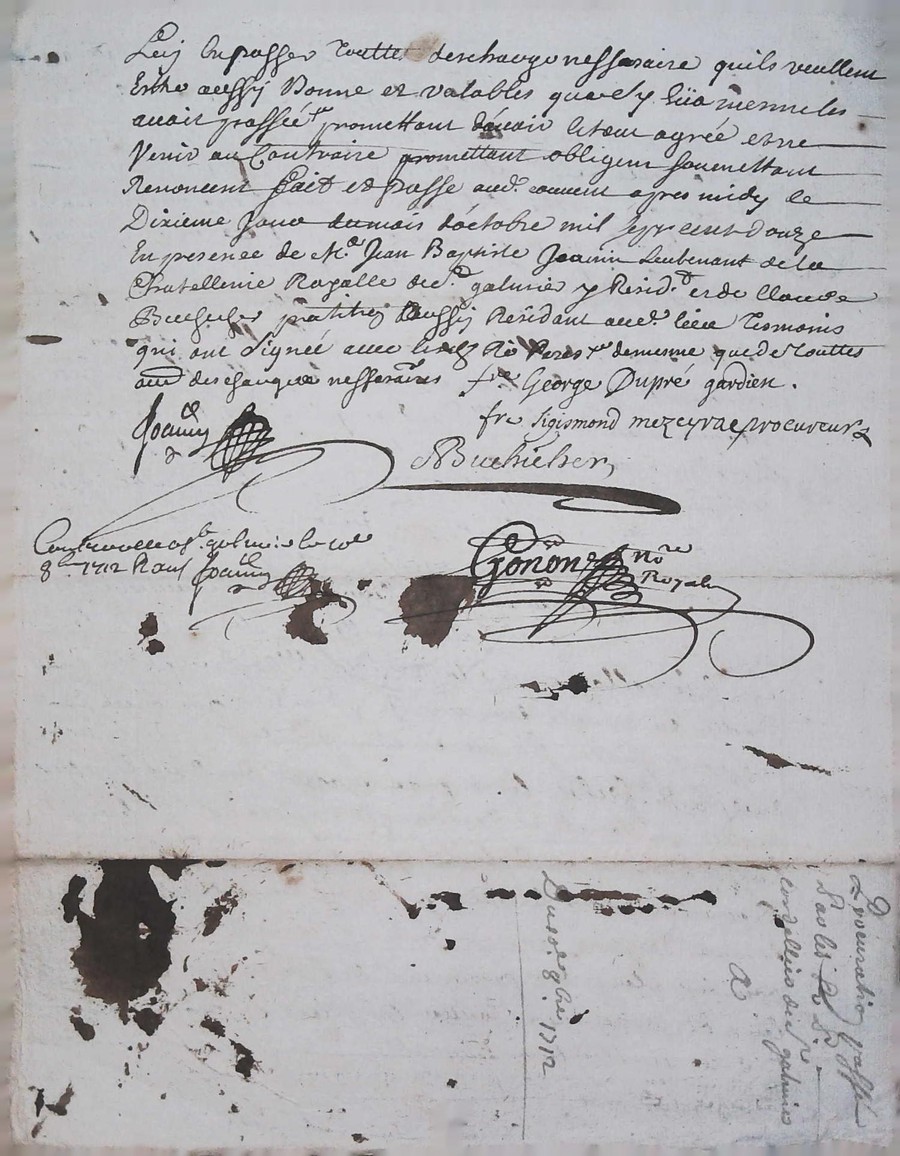 Luy en passer touttes descharge nessesaire quils veullent
Estre aussy Bonne et valables que sy Eux mesme les
avait passée promettant davoir letout agrée et ne
Venir au Contraire promettant obligeant soumettant
Renoncent fait et passe aud. couvent apres midy le
Dixieme Jour du mois d'octobre mil sept cent douze
En presence de Me Jean Baptiste Joanin Lieutenant de la
Chatellenie Royalle de St galmier y Resid.t et de Claude
Buchicher pratitien aussy Residant aud. lieu Tesmoins
qui ont signée avec lesd. Rd Peres demesme que de touttes
descharque nessesaires fre George Dupré gardien.
fre Sigismond mezeyrac procureur
Joanin
Buchicher
Controlle a St galmier le 10e
8bre 1712 Joanin
Gonon no.re
Royal
Procuration passé
Par les R. P.
cordelliers de St galmier
Du 10e 8bre 1712